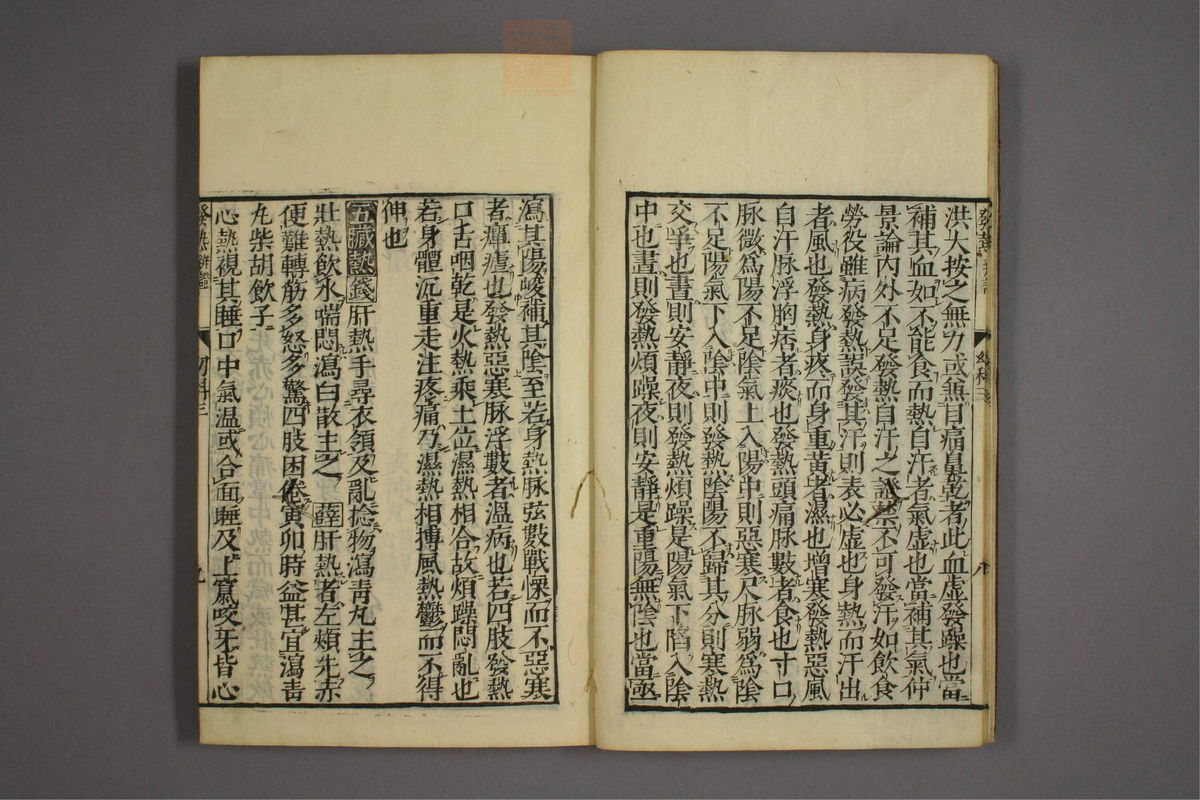 洪大按之無力或無目痛鼻乾者此血虛發躁也當
補其血如不能食而熱自汗者氣虛也當補其氣仲
景論内外不足發熱自汗之證禁不可發汗如飲食
勞役雖病發熱誤發其汗則表必虛也身熱而汗出
者風也發熱身疼而身重黄者濕也增寒發熱惡風
自汗脉浮胸痞者痰也發熱頭痛脉數者食也寸口
脉微爲陽不足陰氣上入陽中則惡寒尺脉弱爲陰
不足陽氣下入陰中則發熱陰陽不歸其分則寒熱
交爭也晝則安靜夜則發熱煩躁是陽氣下陷入陰
中也晝則發熱煩躁夜則安靜是重陽無陰也當亟
瀉其陽峻補其陰至若身熱脉弦數戰慄而不惡寒
者癉瘧也發熱惡寒脉浮數者溫病也若四肢發熱
口舌咽乾是火熱乘土位濕熱相合故煩躁悶亂也
若身體沉重走注疼痛乃濕熱相搏風熱鬱而不得
伸也
五臟熱錢肝熱手尋衣領及亂捻物瀉青丸主之
壯熱飲水喘悶瀉白散主之薛肝熱者左頰先赤
便難轉筋多怒多驚四肢困倦寅卯時益甚宜瀉青
丸柴胡飲子
心熱視其睡口中氣温或合面睡及上竄咬牙皆心
發熱辨證 幼科三 九